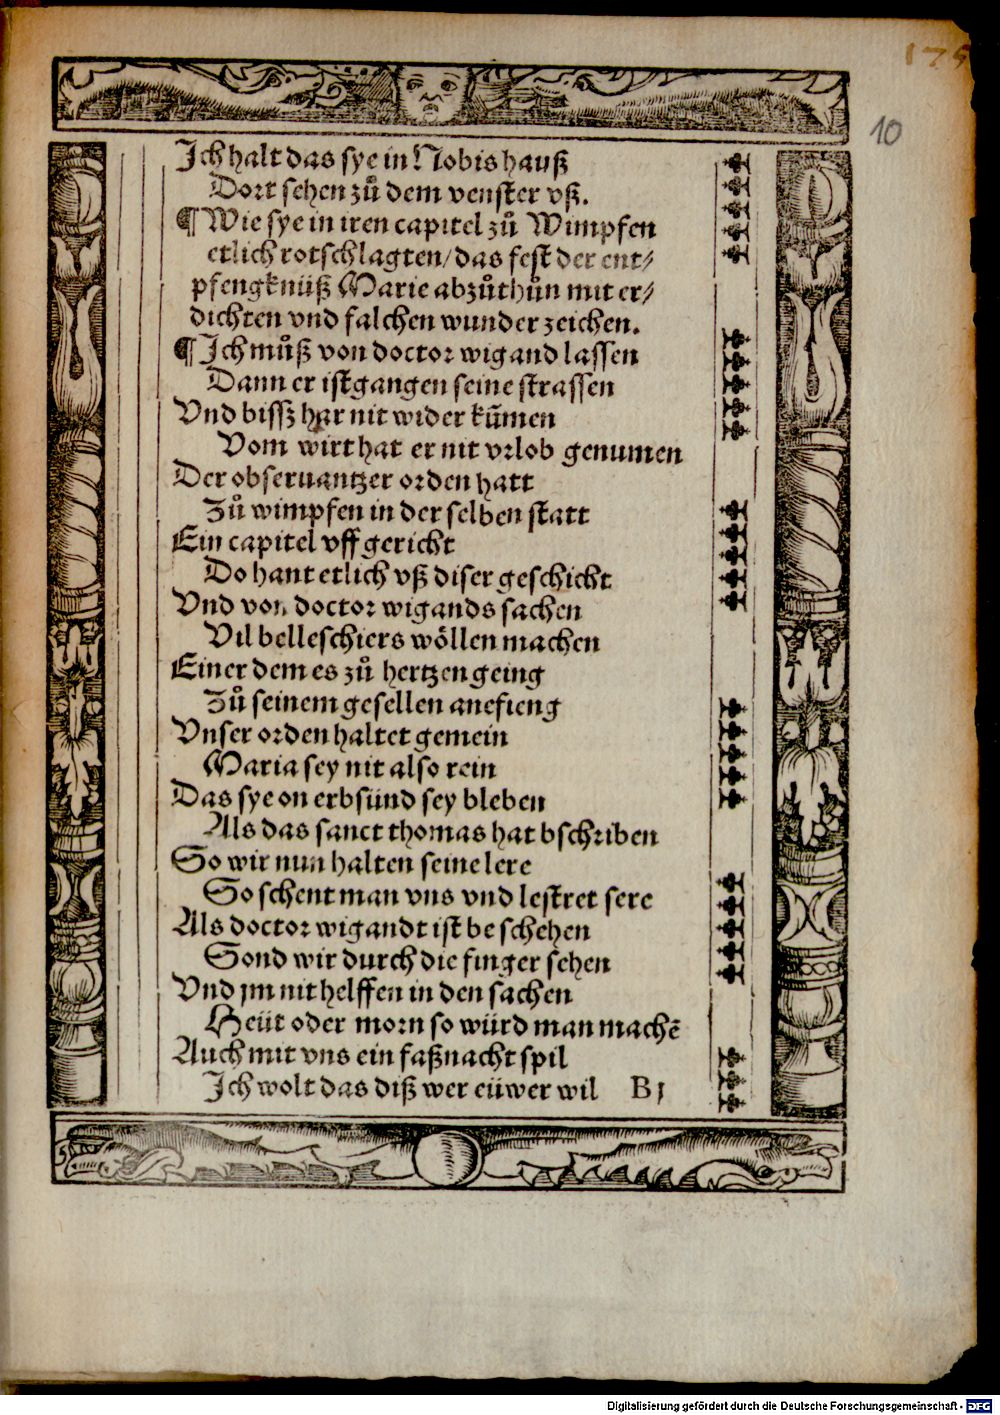 175
10
Jch halt das sye in Nobis hauß
Dort sehen zů dem venster vß.
¶ Wie sye in iren capitel zů Wimpfen
etlich rotschlagten/ das fest der ent⸗
pfengknüß Marie abzůthůn mit er⸗
dichten vnd falchen wunder zeichen.
¶ Jch můß von doctor wigand lassen
Dann er ist gangen seine strassen
Vnd bissz har nit wider kum̃en
Vom wirt hat er nit vrlob genumen
Der obseruantzer orden hatt
Zů wimpfen in der selben statt
Ein capitel vff gericht
Do hant etlich vß diser geschicht
Vnd von doctor wigands sachen
Vil belleschiers wöllen machen
Einer dem es zů hertzen geing
Zů seinem gesellen anefieng
Vnser orden haltet gemein
Maria sey nit also rein
Das sye on erbsünd sey bleben
Als das sanct thomas hat bschriben
So wir nun halten seine lere
So schent man vns vnd lestret sere
Als doctor wigandt ist be schehen
Sond wir durch die finger sehen
Vnd jm nit helffen in den sachen
Heüt oder morn so würd man machē
Auch mit vns ein faßnacht spil
Jch wolt das diß wer eüwer wil B j
Digitalisierung gefördert durch die Deutsche Forschungsgemeinschaft - DFG